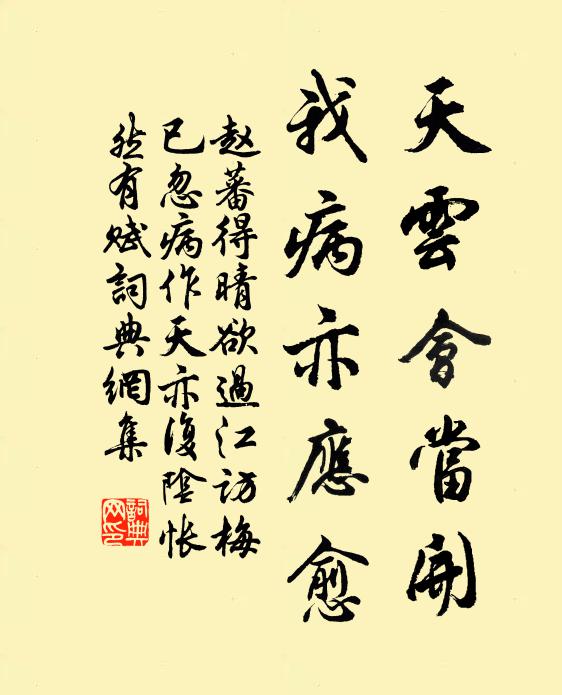 天雲會當開
我病亦應愈
赵蕃得晴欲過江访梅
已忽病作天亦復陰怅
然有赋詞典網集
詞典
网印